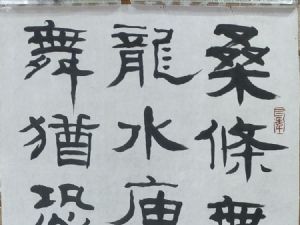 桑條無
龍水庙
舞猶恐